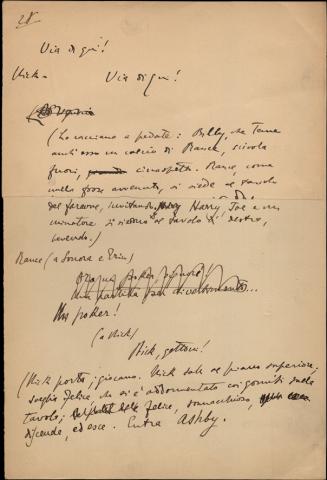 28
Via di qui!
Nick - Via di qui!
(Lo cacciano a pedate: Billy, che teme
anch'esso un calcio di Rance, scivola
fuori, circospetto. Rance, come
nulla fosse avvenuto, si siede al tavolo
del faraone, invitando Harry Joe e un
minatore si siedono al tavolo a destra,
bevendo.)
Rance (a Sonora e Trin)
una partita per divertimento...
Un poker!
(a Nick)
Nick, gettoni!
(Nick porta; giocano. Nick sale al piano superiore,
sveglia Felice, che si è addormentato coi gomiti sulla
tavola; Felice, sonnacchioso,
discende, ed esce. Entra Ashby.